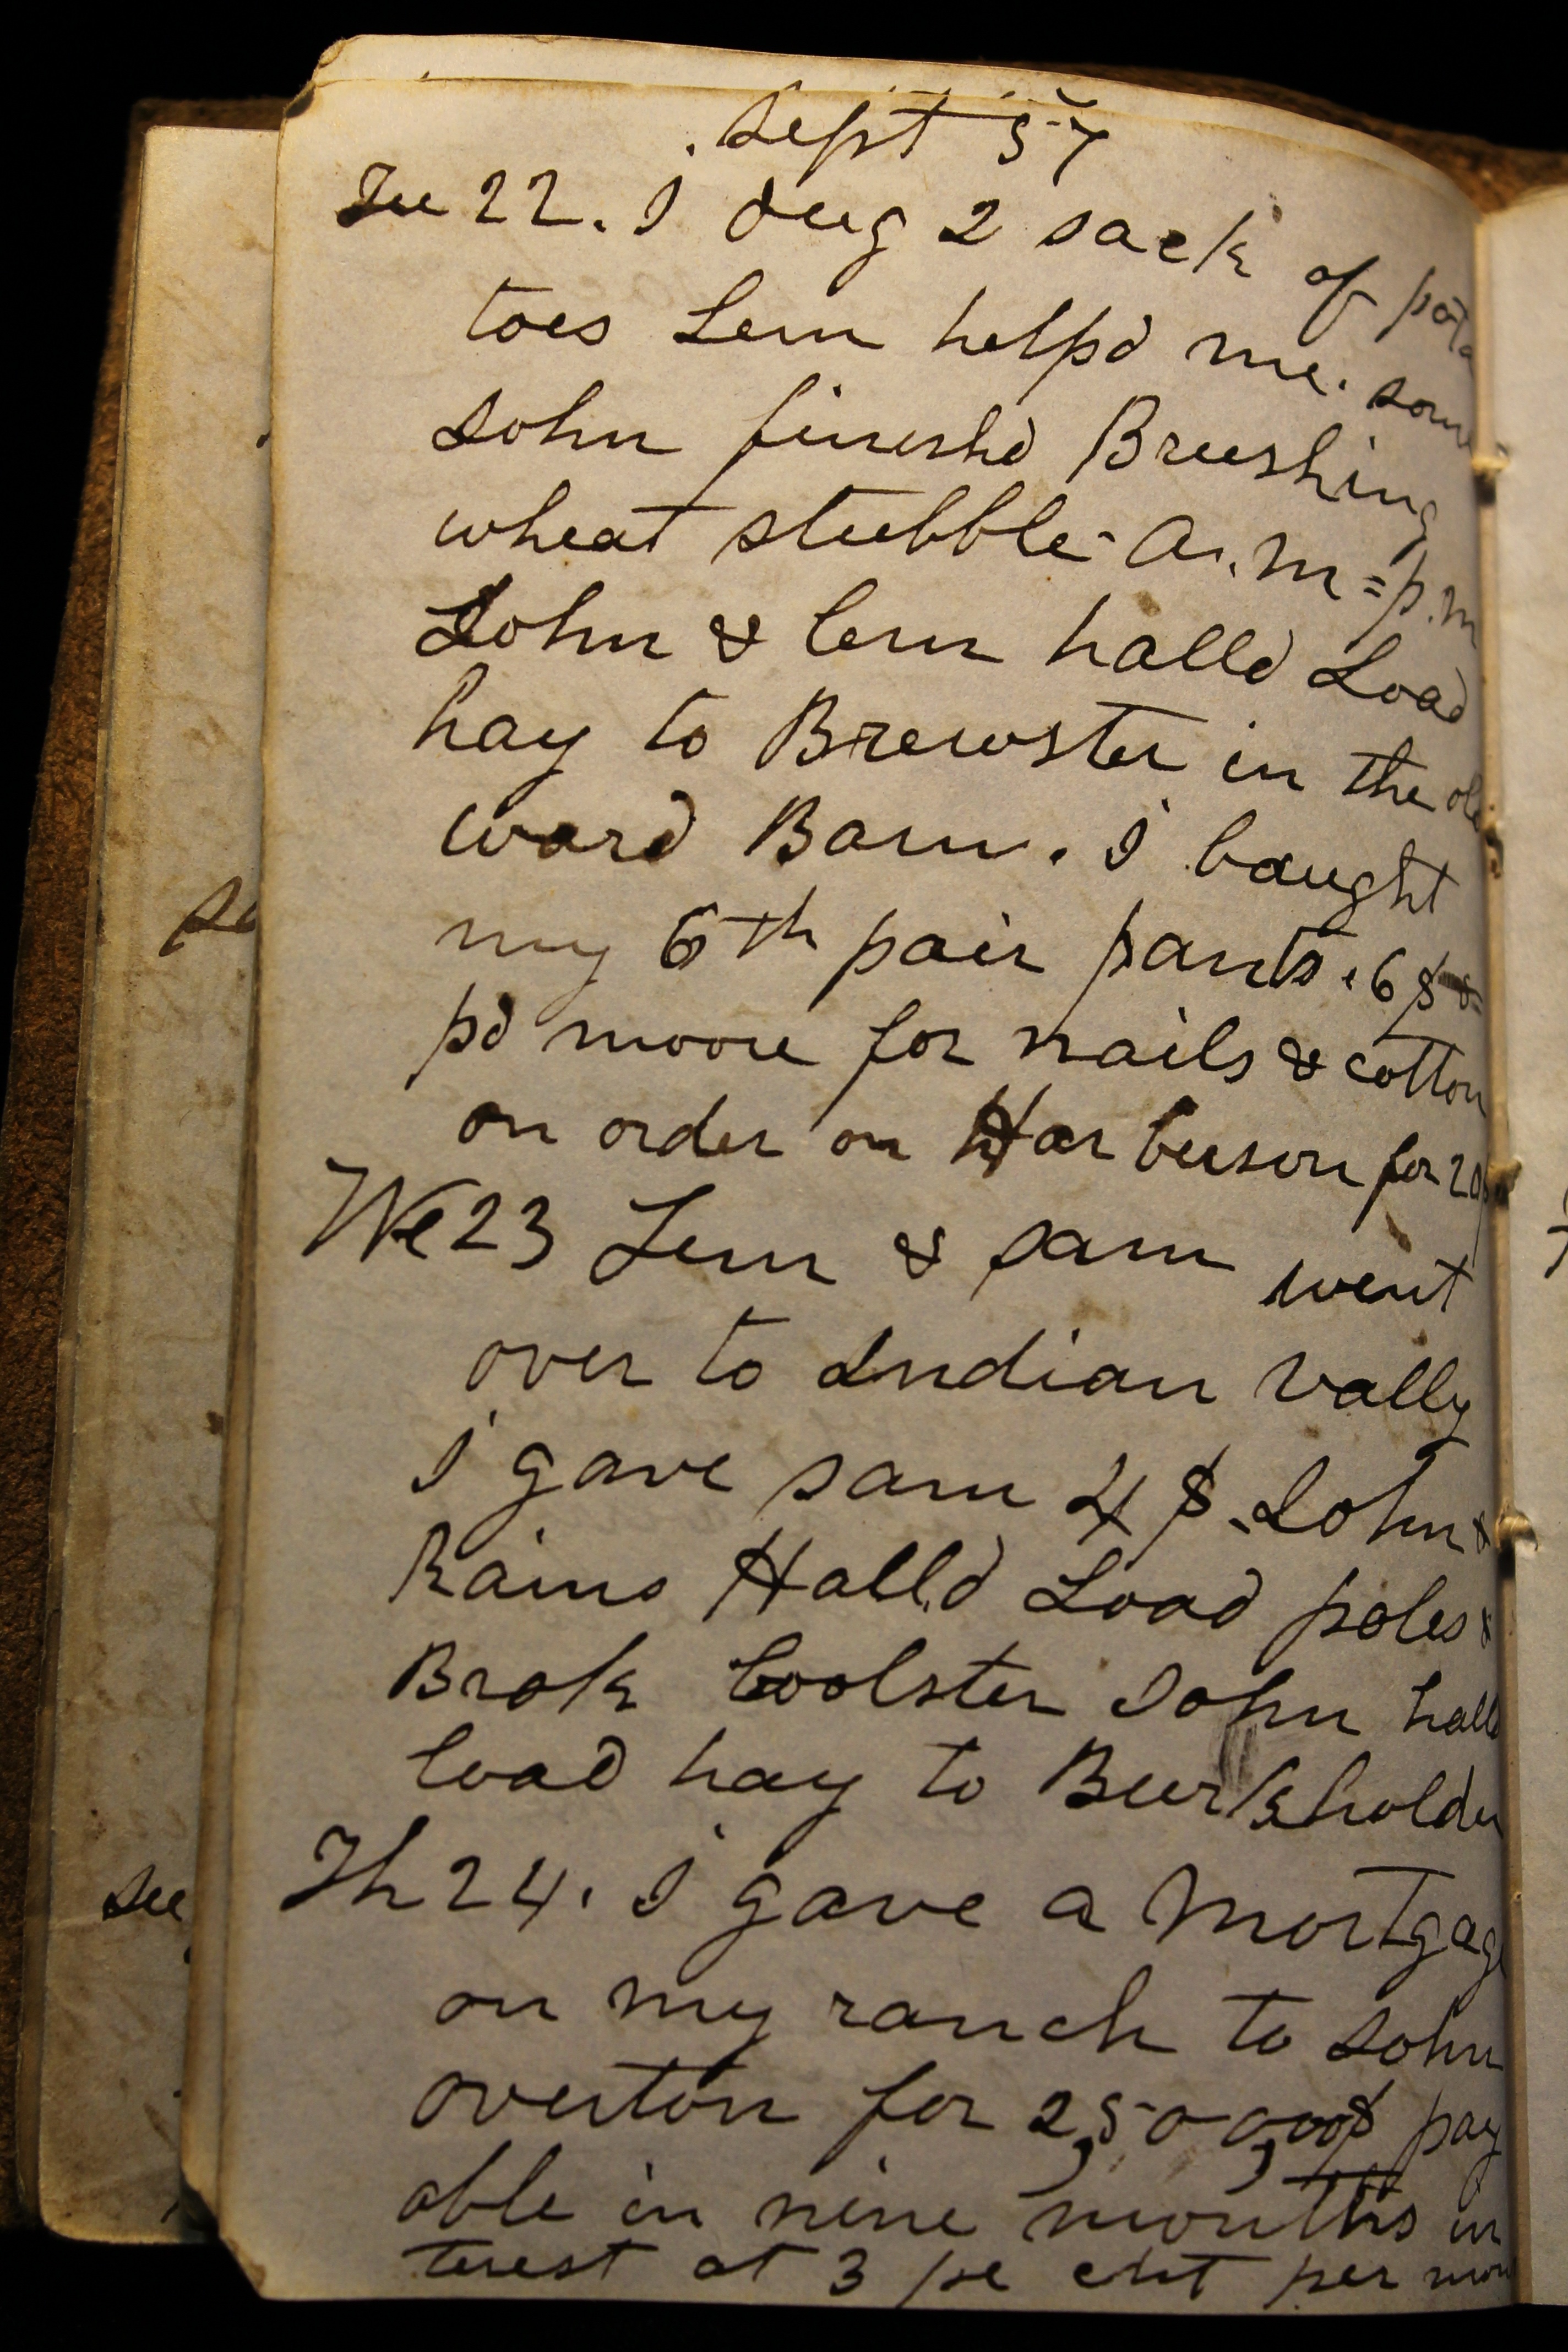 Sept 57
Tu 22. I dug 2 sack of pota
toes Lem helpd me. some
John finishd Brushing
wheat stubble - A.M = p.m
John & lem halld Load
hay to Brewster in the old
ward Barn. I baught
my 6th pair pants. 6$
pd moore for nails & cotton
on order on Harbuson for 20
We 23 Lem & Sam went
over to Indian Vally
I gave Sam 4 $. John &
Rains Halld Load poles &
Brok boolster John halld
load hay to Burkholder
Th 24. I gave a Mortgage
on my ranch to John
overton for 2,500,00$ pay
able in nine months in
terest at 3 pe cnt per mon
see